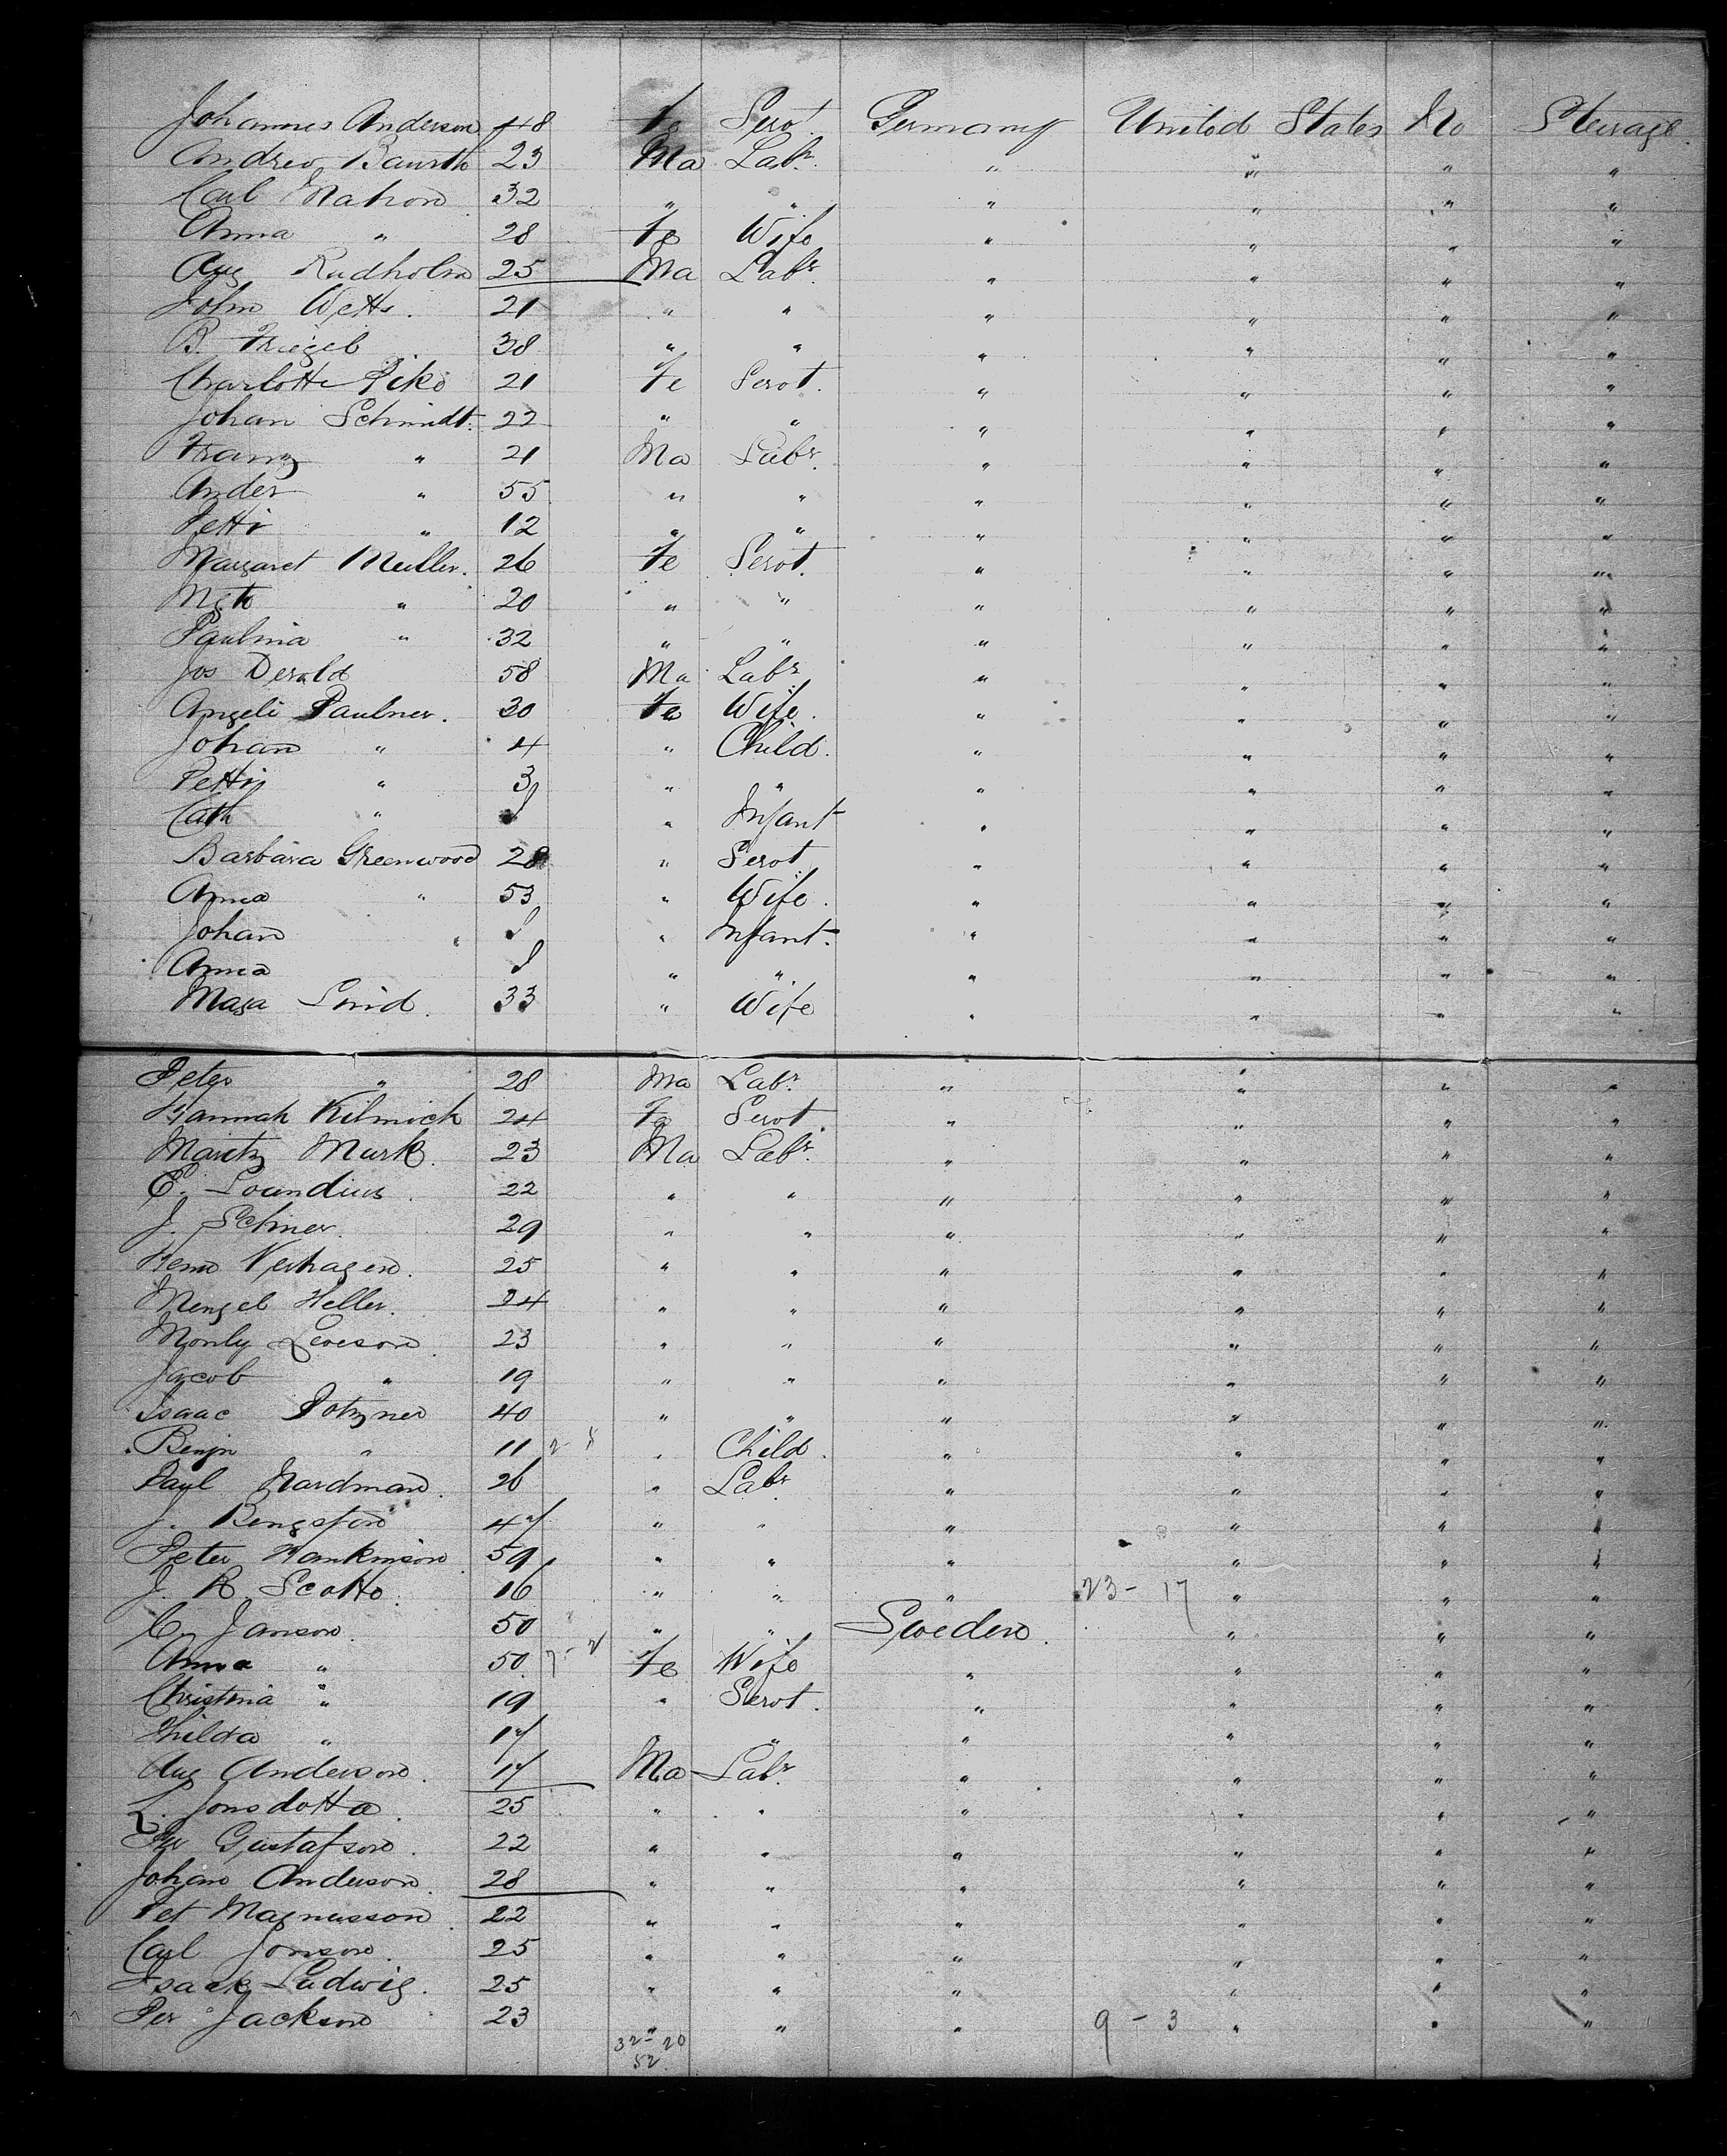 Johannes Anderson 48 Fe Servt. Germany United States No Steerage
Andrew 23 Ma Labr. " " " "
Carl 32 " " " " " "
Anna " 28 Fe Wife " " " "
Aug Rudholm 25 Ma Labr. " " " "
John Wetts. 21 " " " " " "
B. Friegel 38 " " " " " "
Charlotte Piko 21 Fe Servt. " " " "
Johan Schmidt. 22 " " " " " "
Franz " 21 Ma Labr. " " " "
Ander " 55 " " " " " "
Pettr " 12 " " " " " "
Margaret Muller. 26 Fe Servt. " " " "
" 20 " " " " " "
Paulina " 32 " " " " " "
Jos Derald 58 Ma Labr " " " "
Angeli Paulner. 30 Fe Wife. " " " "
Johan " 4 " Child. " " " "
" 3 " " " " " "
Cath " " Infant " " " "
Barbara Greenwood 28 " Servt " " " "
Anna " 53 " Wife. " " " "
Johan " " Infant. " " " "
Anna " " " " " "
33 " Wife " " " "
Peter " 28 Ma Labr. " " " "
Hannah Kilmick 24 Fe Servt. " " " "
Moritz Murk. 23 Ma Labr. " " " "
E. Loundius. 22 " " " " " "
J. Schner. 29 " " " " " "
Verhagen. 25 " " " " " "
Menzel Heller. 24 " " " " " "
Leveson. 23 " " " " " "
Jacob " 19 " " " " " "
Isaac 40 " " " " " "
Benjn " 11 " Child. " " " "
Paul Nardman. 26 " Labr. " " " "
J. Bengston 47 " " " " " "
Peter Hankinson. 59 " " " " " "
J. R. Scotto. 16 " " " 23 - 17 " " "
C. Janson. 50 " " Sweden. " " "
Anna " 50. Fe Wife " " " "
Christina " 19 " Servt. " " " "
Hilda " 17 " " " " "
Aug Anderson. 17 Ma Labr. " " " "
L. Jonsdotta. 25 " " " " " "
Per Gustafson. 22 " " " " " "
Johan Anderson. 28 " " " " " "
Pet Magnusson. 22 " " " " " "
Carl Jonson. 25 " " " " " "
Isaak Ludwig. 25 " " " " " "
Per Jackson 23 " " " 9 - 3 " " "
32 - 20
52.